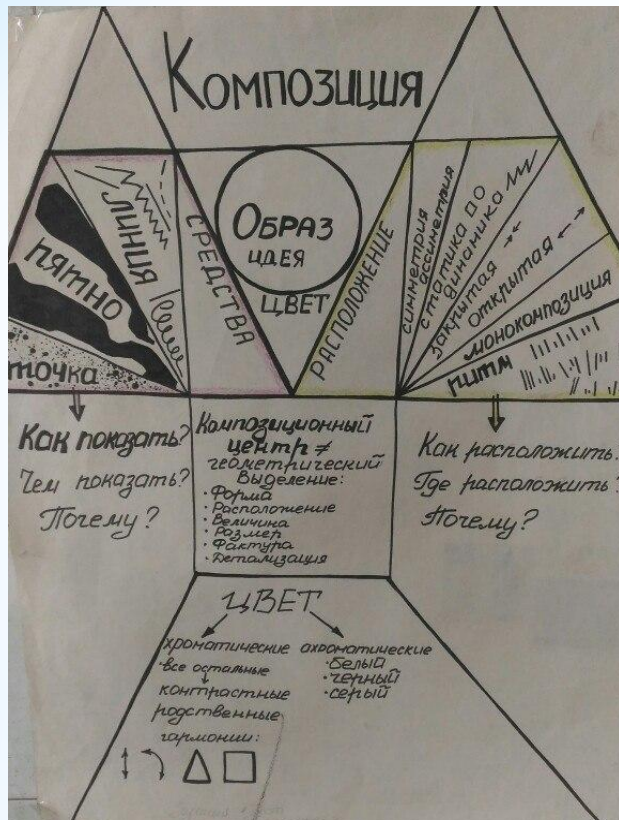 Композиция
точка
пятно
линия
средства
Образ
идея
цвет
расположение
симметрия
ассиметрия
статика до
динаника
закрытая
открытая
монокомпозиция
ритм
Как показать?
Чем показать?
Почему?
Композиционный
центр ≠
геометрический
Выделение:
· Форма
· Расположение
· Величина
· Размер
· Фактура
· Детализация
Как расположить.
Где расположить?
Почему?
ЦВЕТ
хроматические
· все остальные
контрастные
родственные
гармонии:
ахроматические
· белый
· черный
· серый